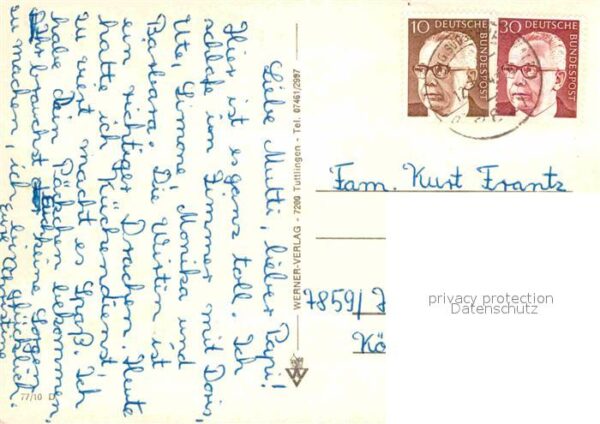 Liebe Mutti, lieber Papi!
Hier ist es ganz toll. Ich
schlafe im Zimmer mit Doris,
Ute, Simone, Monika und
Barbara. Die Wirtin ist
ein richtiger Drachen. Heute
hatte ich Küchendienst
zu viert macht es Spaß. Ich
habe dein Päckchen bekommen.
Ihr braucht Euch keine Sorgen
zu machen, ich bin glücklich.
Eure
WERNER-VERLAG - 7200 Tuttlingen - Tel. 07461/2997
77/10 D
10 DEUTSCHE BUNDESPOST
30 DEUTSCHE BUNDESPOST
Fam. Kurt Frantz
7859/J
Kö
privacy protection
Datenschutz